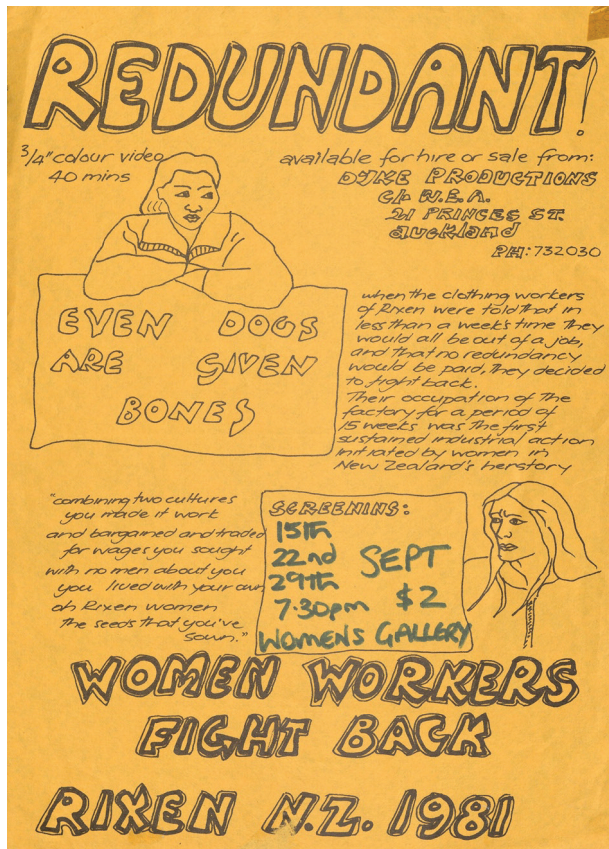 REDUNDANT!
3/4" colour video
40 mins
available for hire or sale from:
DYKE PRODUCTIONS
C/o N.E.A.
21 PRINCES ST.
auckland
PH: 732030
EVEN DOGS
ARE GIVEN
BONES
when the clothing workers
of Rixen were told that in
less than a week's time they
would all be out of a job,
and that no redundancy
would be paid, they decided
to fight back.
Their occupation of the
factory for a period of
15 weeks was the first
sustained industrial action
initiated by women in
New Zealand's herstory
"combining two cultures
you made it work
and bargained and traded
for wages you sought
with no men about you
you lived with your own
ah Rixen women
the seeds that you've
sown."
SCREENING:
15th
22nd SEPT
29th
7.30pm $2
WOMENS GALLERY
WOMEN WORKERS
FIGHT BACK
RIXEN N.Z. 1981